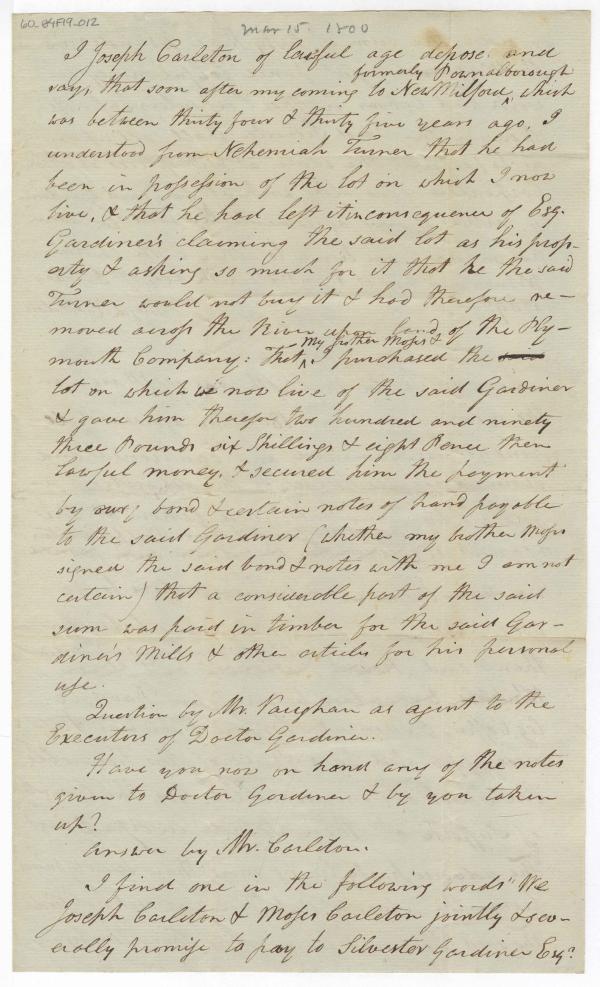 60_84F19_012
Mar 15 1800
I Joseph Carleton of lawful age depose and
say, that soon after my coming to New Milford, which
formerly Pownalborough
was between thirty four & thirty five years ago, I
understood from Nehemiah Turner that he had
been in possession of the lot on which I now
live, & that he had left it in consequence of Esq.
Gardiner's claiming the said lot as his prop-
erty & asking so much for it that he the said
Turner would not buy it & had therefore re-
moved across the River upon land of the Ply-
mouth Company: That I purchased the said
my brother Moses &
lot on which we now live of the said Gardiner
& gave him therefor two hundred and ninety
three Pounds six Shillings & eight Pence then
lawful money, & secured him the payment
by bond & certain notes of hand payable
to the said Gardiner (whether my brother Moses
signed the said bond & notes with me I am not
certain) that a considerable part of the said
sum was paid in timber for the said Gar-
diner's Mills & other articles for his personal
use.
Question by Mr. Vaughan as agent to the
Executors of Doctor Gardiner.
Have you now on hand any of the notes
given to Doctor Gardiner & by you taken
up?
Answer by Mr. Carleton.
I find one in the following words "We
Joseph Carleton & Moses Carleton jointly & sev-
erally promise to pay to Silvester Gardiner Esqr.